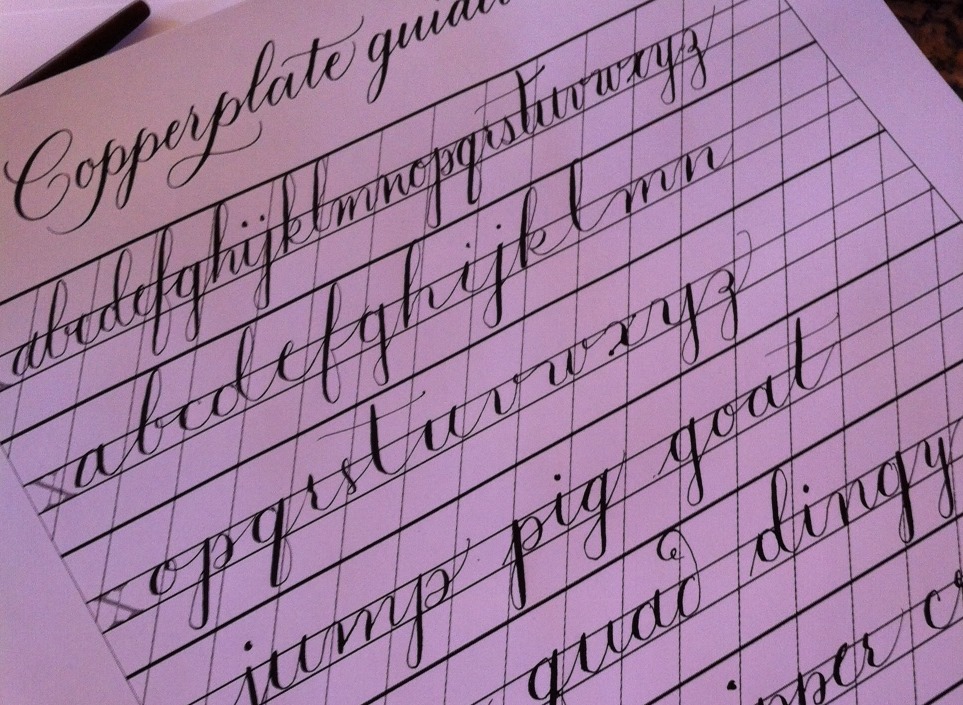 Copperplate
abcdefghijklmnopqrstuvwxyz
x abcdefghijklmn
x opqrstuvwxyz
jump pig goat
quad dingy